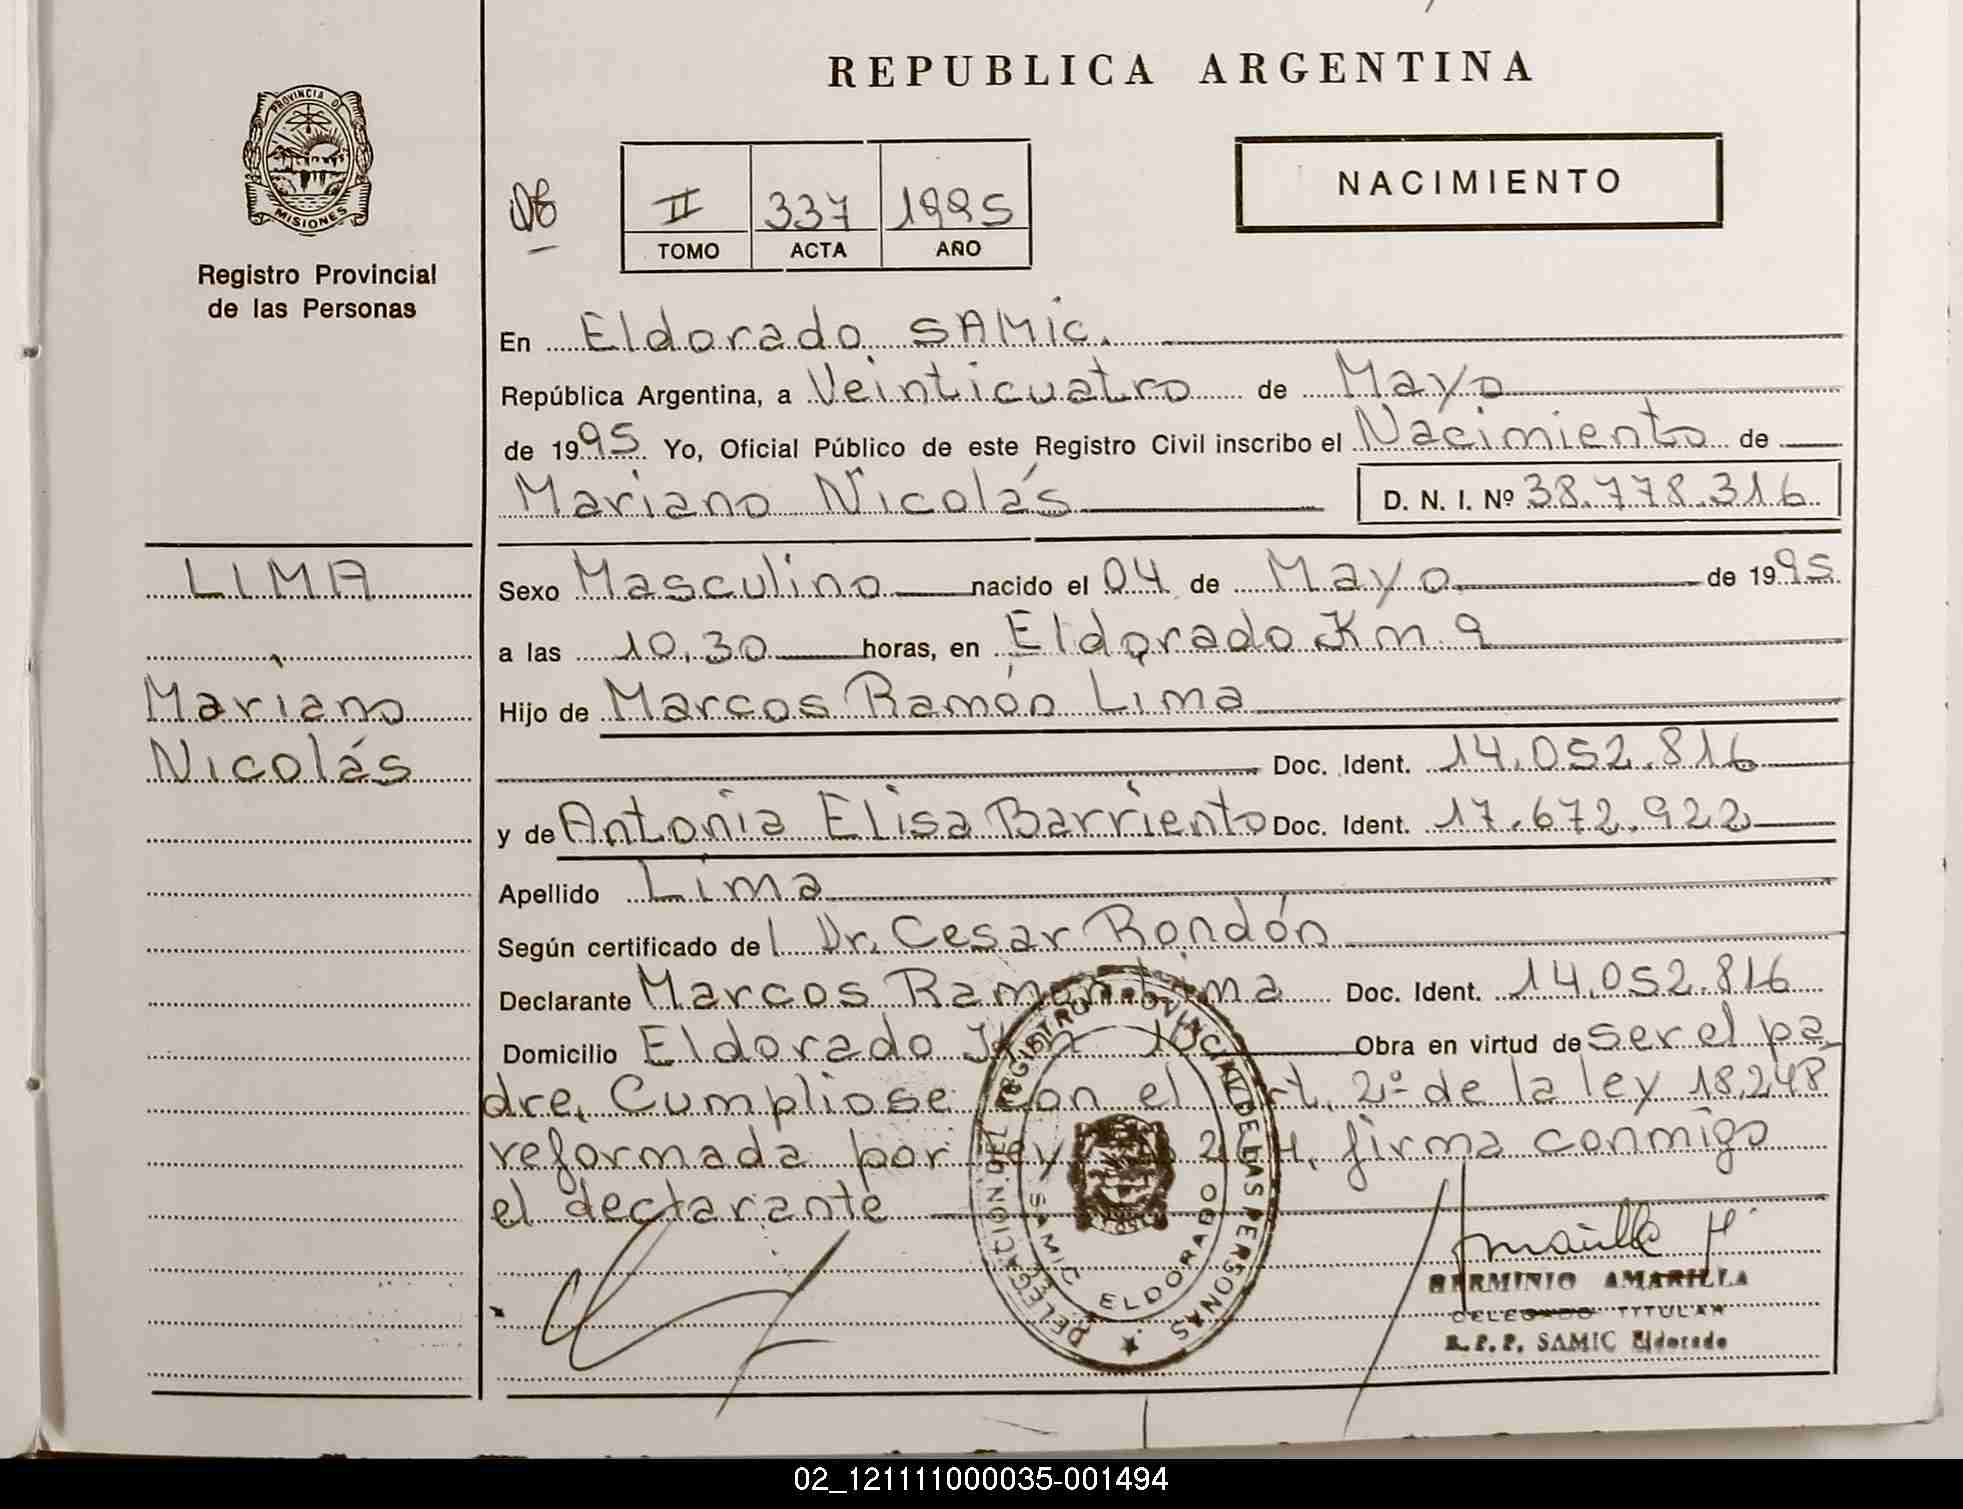 REPUBLICA ARGENTINA
PROVINCIA DE
MISIONES
Registro Provincial
de las Personas
II 337 1995
TOMO ACTA AÑO
NACIMIENTO
En Eldorado SAMIC.
República Argentina, a Veinticuatro de Mayo
de 1995 Yo, Oficial Público de este Registro Civil inscribo el Nacimiento de
Mariano Nicolás D. N. I. Nº 38.778.316
LIMA
Mariano
Nicolás
Sexo Masculino nacido el 04 de Mayo de 1995
a las 10,30 horas, en Eldorado Km 9
Hijo de Marcos Ramón Lima
Doc. Ident. 14.052.816
y de Antonia Elisa Barriento Doc. Ident. 17.672.922
Apellido Lima
Según certificado del Dr. Cesar Rondón
Declarante Marcos Ramón Lima Doc. Ident. 14.052.816
Domicilio Eldorado Km 10 Obra en virtud de ser el pa
dre. Cumpliose con el Art. 2º de la ley 18.248
reformada por ley firma conmigo
el declarante
DELEGACION DEL REGISTRO PROVINCIAL DE LAS PERSONAS
SAMIC ELDORADO
HERMINIO AMARILLA
DELEGADO TITULAR
R.P.P. SAMIC Eldorado
02_121111000035-001494